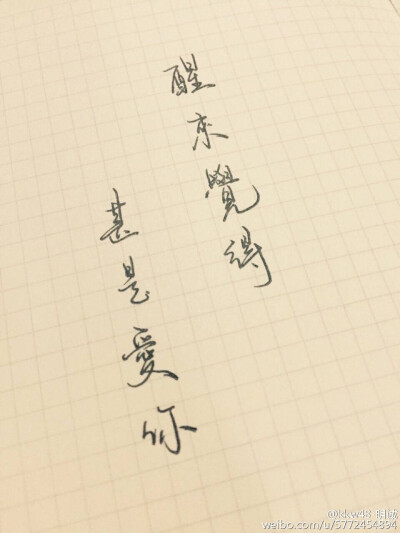 醒來覺得
甚是愛你
@kkw48-明诚
weibo.com/u/5772454894